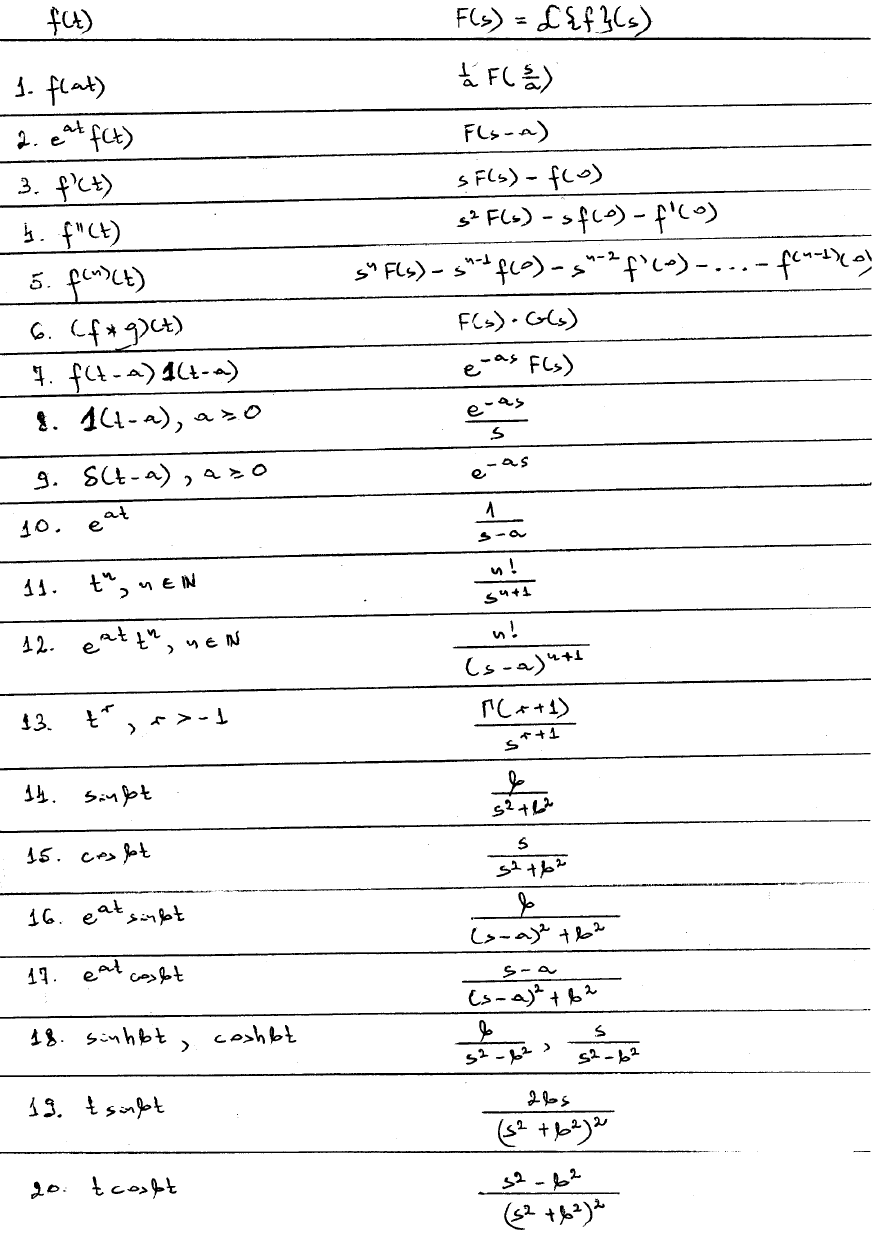 f(t) F(s) = ℒ{f}(s)
1. f(at) 1/a F(s/a)
2. e^{at} f(t) F(s-a)
3. f'(t) sF(s) - f(0)
4. f''(t) s² F(s) - sf(0) - f'(0)
5. f^{(n)}(t) s^n F(s) - s^{n-1} f(0) - s^{n-2} f'(0) - ... - f^{(n-1)}(0)
6. (f * g)(t) F(s) · G(s)
7. f(t-a) 1(t-a) e^{-as} F(s)
8. 1(t-a), a ≥ 0 e^{-as}/s
9. δ(t-a), a ≥ 0 e^{-as}
10. e^{at} 1/(s-a)
11. t^n, n ∈ ℕ n!/s^{n+1}
12. e^{at} t^n, n ∈ ℕ n!/(s-a)^{n+1}
13. t^r, r > -1 Γ(r+1)/s^{r+1}
14. sin bt b/(s²+b²)
15. cos bt s/(s²+b²)
16. e^{at} sin bt b/((s-a)²+b²)
17. e^{at} cos bt (s-a)/((s-a)²+b²)
18. sinh bt, cosh bt b/(s²-b²), s/(s²-b²)
19. t sin bt 2bs/(s²+b²)²
20. t cos bt (s²-b²)/(s²+b²)²